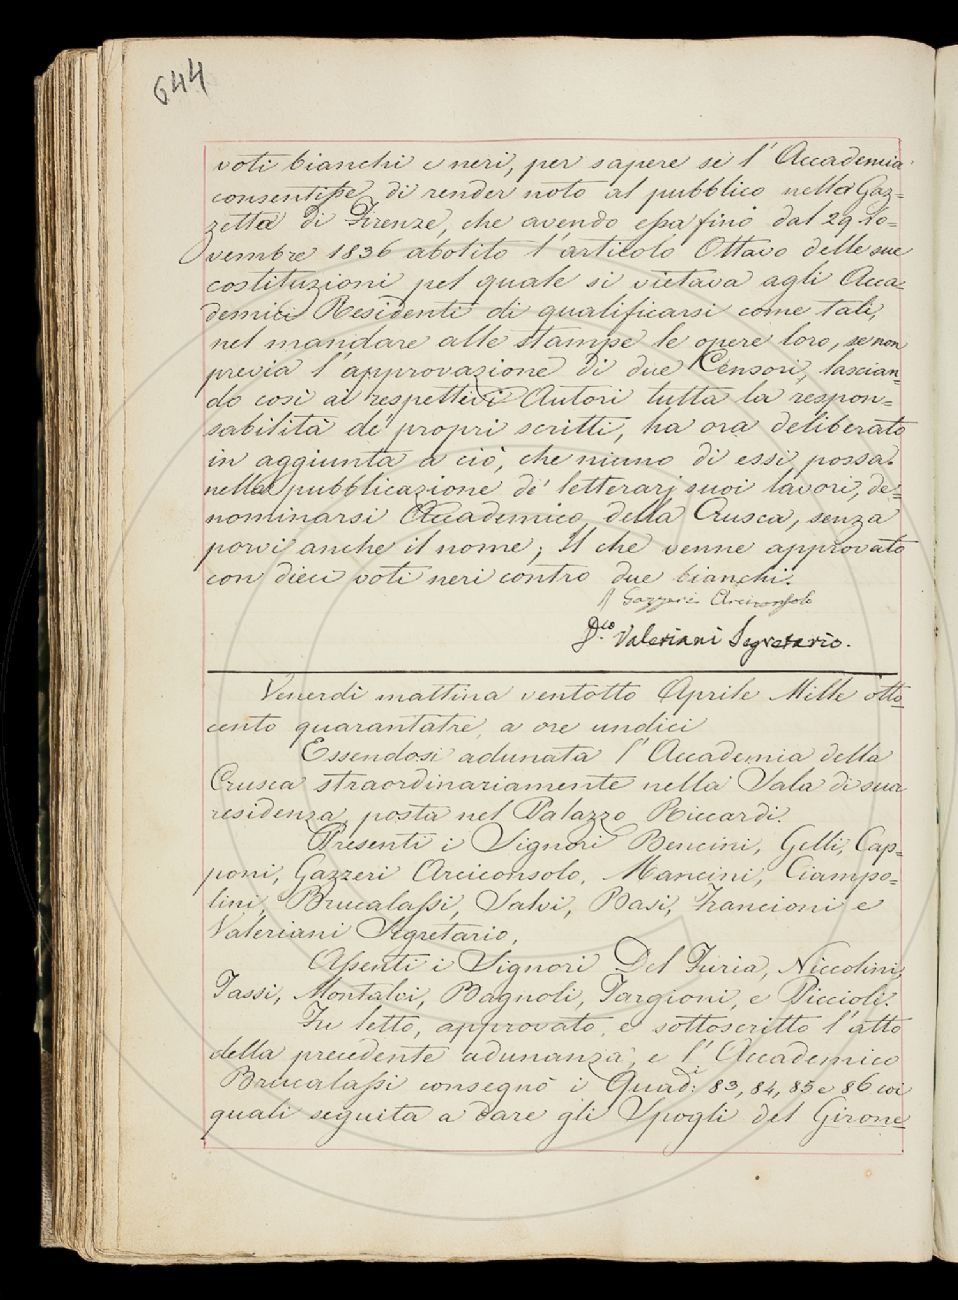 644
voti bianchi e neri, per sapere se l'Accademia
consentisse di render noto al pubblico nella Gaz=
zetta di Firenze, che avendo essa fino dal 29 No=
vembre 1836 abolito l'articolo Ottavo delle sue
costituzioni pel quale si vietava agli Acca=
demici Residenti di qualificarsi come tali,
nel mandare alle stampe le opere loro, se non
previa l'approvazione di due Censori, lascian=
do così ai respettivi Autori tutta la respon=
sabilità de' propri scritti, ha ora deliberato
in aggiunta a ciò, che niuno di essi possa
nella pubblicazione de' letterarj suoi lavori, de=
nominarsi Accademico della Crusca, senza
porvi anche il nome; Il che venne approvato
con dieci voti neri contro due bianchi.
Gazzeri Arciconsolo
D.co Valeriani Segretario.
Venerdì mattina ventotto Aprile Mille otto=
cento quarantatre, a ore undici
Essendosi adunata l'Accademia della
Crusca straordinariamente nella Sala di sua
residenza, posta nel Palazzo Riccardi.
Presenti i Signori Bencini, Gelli, Cap=
poni, Gazzeri Arciconsolo, Mancini, Ciampo=
lini, Brucalassi, Salvi, Basi, Francioni e
Valeriani Segretario,
Assenti i Signori Del Furia, Niccolini,
Tassi, Montalvi, Bagnoli, Targioni, e Piccioli.
Fu letto, approvato, e sottoscritto l'atto
della precedente adunanza, e l'Accademico
Brucalassi consegnò i Quad:i 83, 84, 85 e 86 coi
quali seguita a dare gli Spogli del Girone=